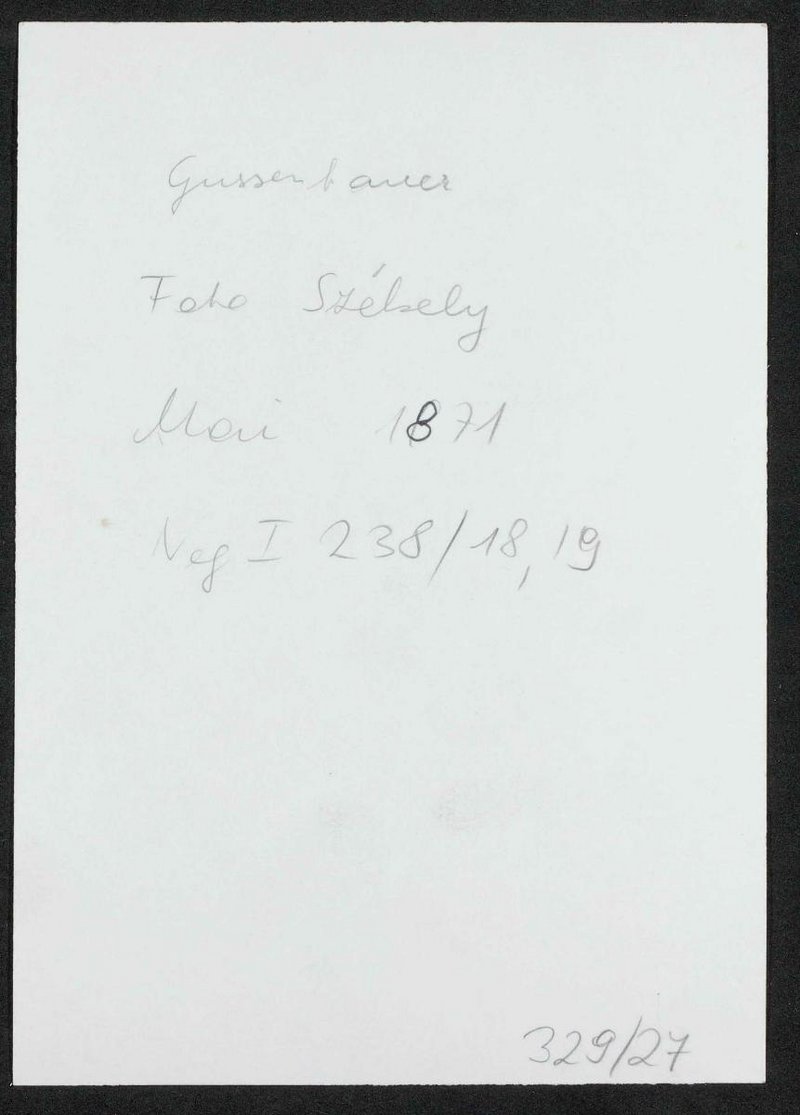 Gussenbauer
Foto Székely
Mai 1871
Neg I 238/18,19
329/27